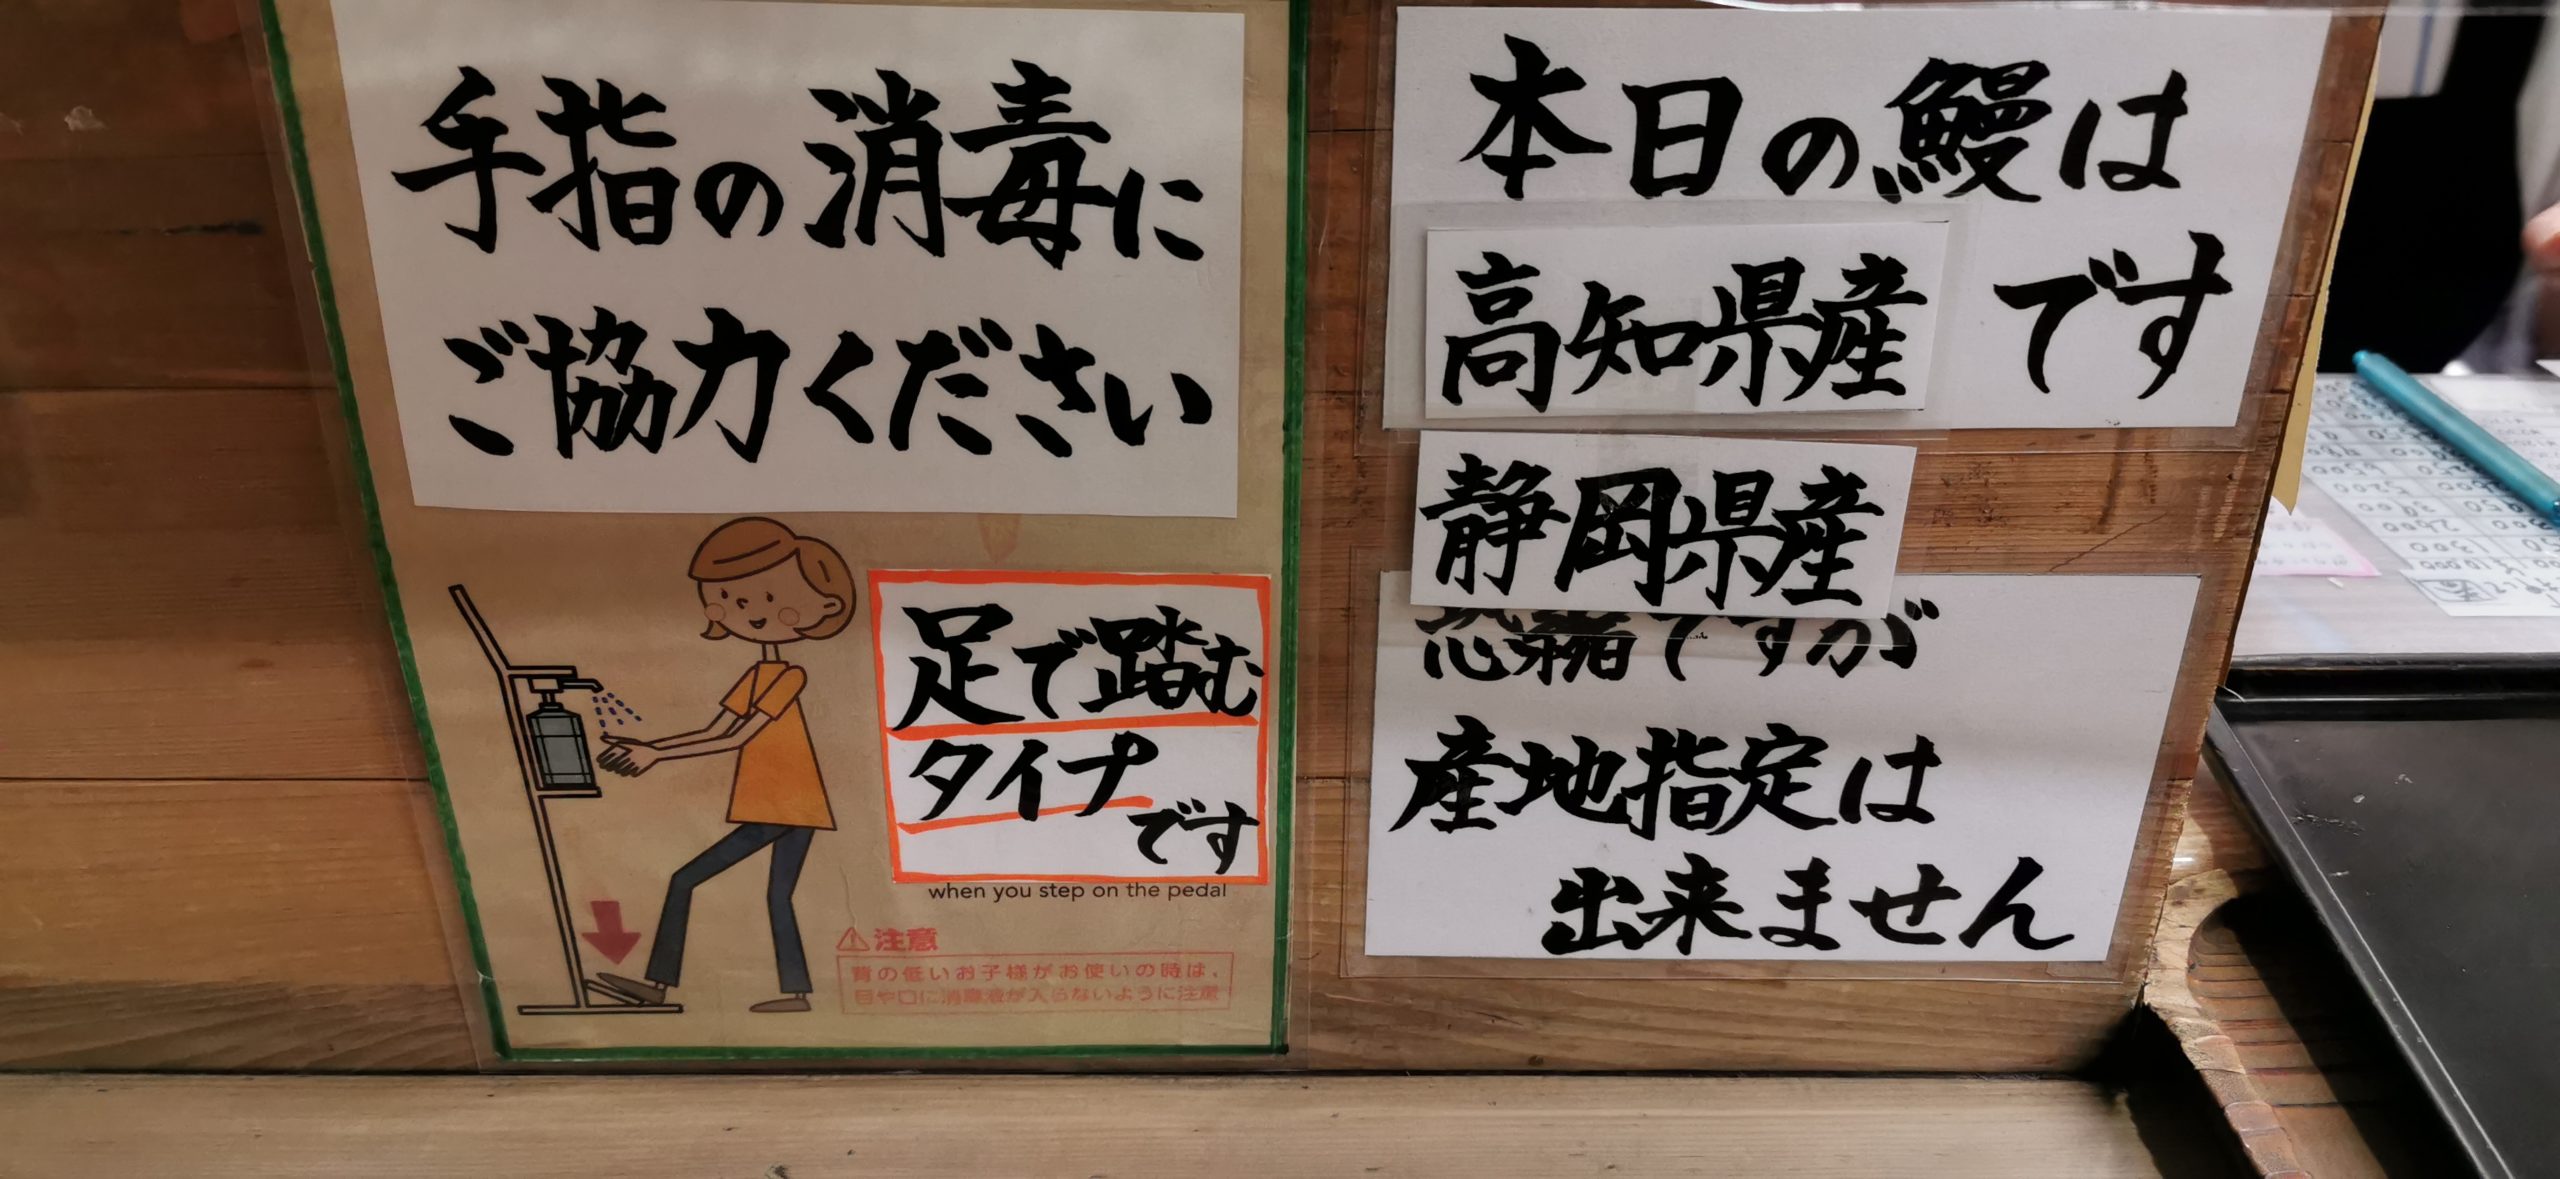 手指の消毒に
ご協力ください
足で踏む
タイプ
です
when you step on the pedal
注意
背の低いお子様がお使いの時は、
目や口に消毒液が入らないように注意
本日の鰻は
高知県産 です
静岡県産
恐縮ですが
産地指定は
出来ません